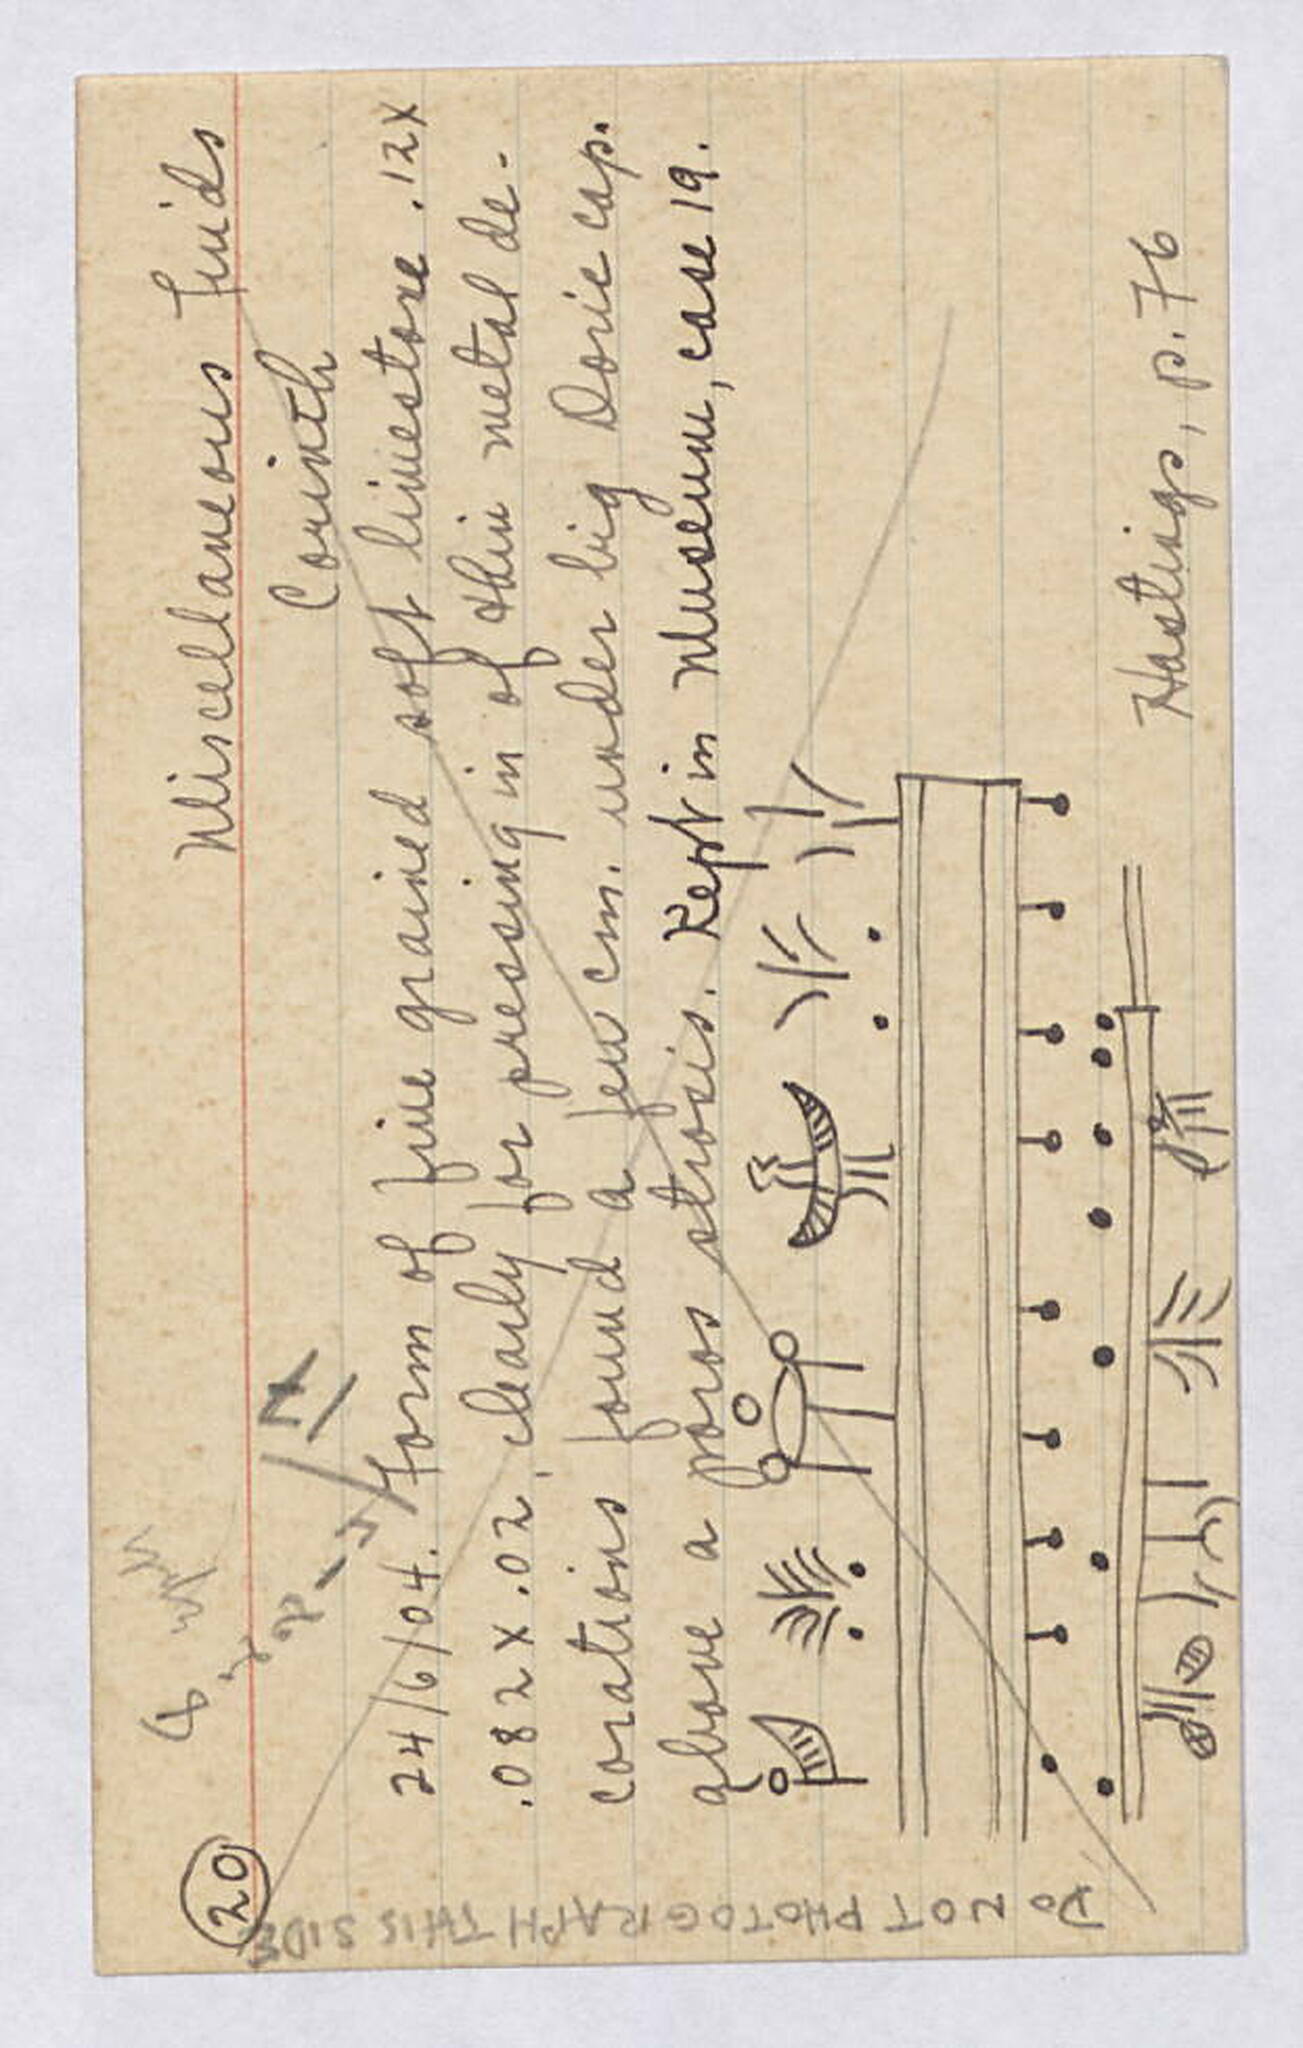 20
Miscellaneous finds
Corinth
24/6/04. Form of fine grained soft limestone .12 X
.082 X .02, clearly for pressing in of thin metal de-
corations found a few cm. under big Doric cap.
above a poros strosis. Kept in Museum, case 19.
Hastings, p. 76
DO NOT PHOTOGRAPH THIS SIDE